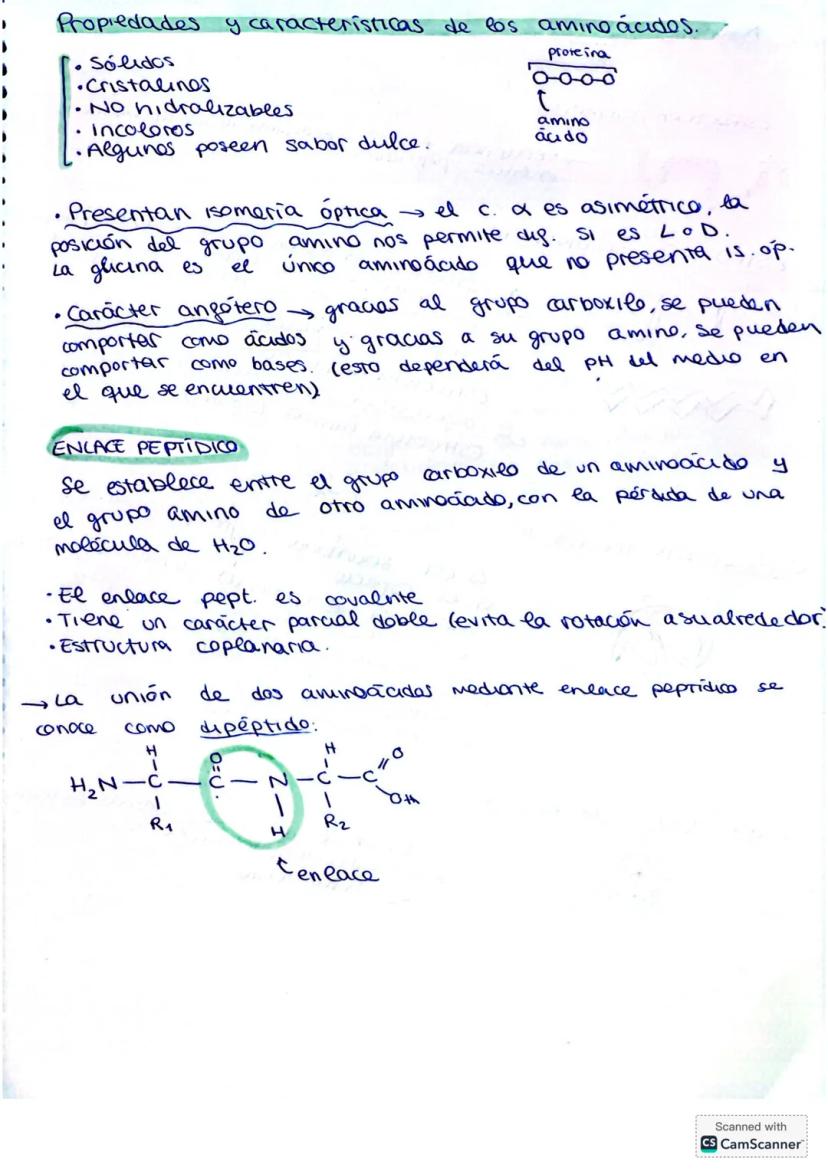 Propiedades y características de los aminoácidos.
proteína
· Sólidos
· Cristalinos
· NO hidralizables
· Incoloros
· Algunos poseen sabor dulce.
amino
ácido
· Presentan isomería óptica → el c. α es asimétrico, la
posición del grupo amino nos permite dig. si es L o D.
La glicina es el único aminoácido que no presenta is. óp.
· Carácter angótero → gracias al grupo carboxilo, se pueden
comportar como ácidos y gracias a su grupo amino, se pueden
comportar como bases. (esto dependerá del pH del medio en
el que se encuentren)
ENLACE PEPTÍDICO
Se establece entre el grupo carboxilo de un aminoácido y
el grupo amino de otro aminoácido, con la pérdida de una
molécula de H2O.
· El enlace pept. es covalente
· Tiene un carácter parcial doble (evita la rotación a su alrededor)
· Estructura coplanaria.
→ La unión de dos aminoácidos mediante enlace peptídico se
conoce como dipéptido:
H O H O
H2N — C — C — N — C — C
OH
R1 H R2
enlace
Scanned with
CS CamScanner